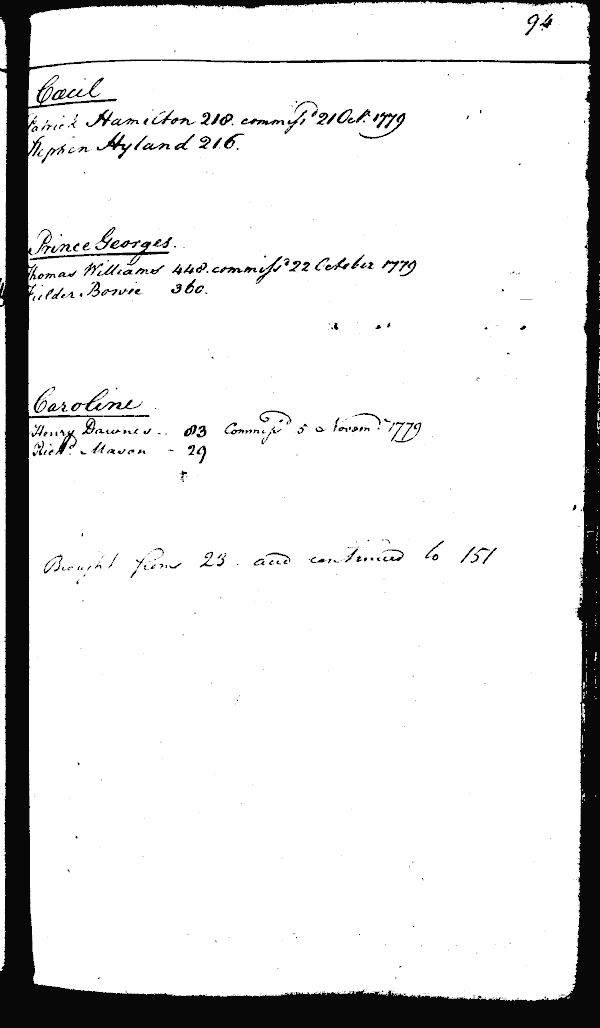 94
Cæcil
Patrick Hamilton 218. commiss'd 21 Oct. 1779
Stephen Hyland 216.
Prince Georges.
Thomas Williams 448. commiss'd 22 October 1779
Fielder Bowie 360.
Caroline
Henry Downes .. 83 Commiss'd 5 Novem'r 1779
Rich'd Mason - 29
Brought from 23 and continued to 151